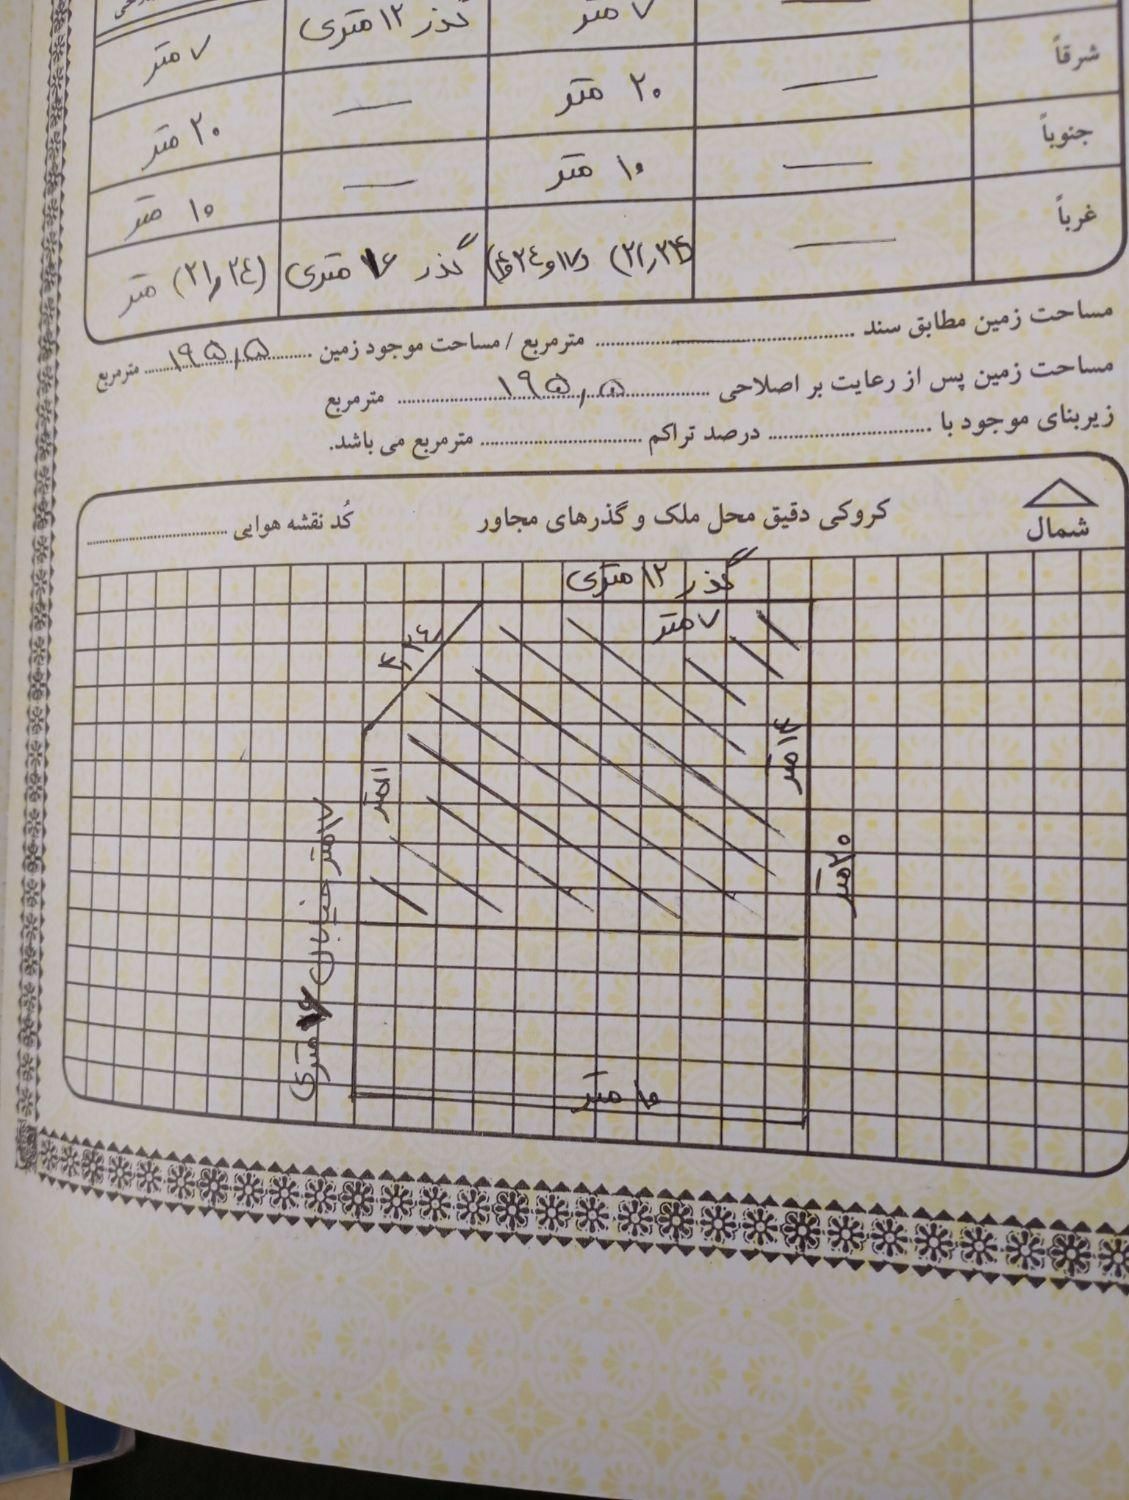 گذر ۱۲ متری ۷ متر
شرقاً — ۲۰ متر — ۷ متر
جنوباً — ۱۰ متر — ۲۰ متر
غرباً — (۲۱,۲۴) (۱۷و۴,۲۴) گذر ۱۶ متری ۱۰ متر
(۲۱,۲۴) متر
مساحت زمین مطابق سند .......... مترمربع / مساحت موجود زمین ۱۹۵,۵ مترمربع
مساحت زمین پس از رعایت بر اصلاحی ۱۹۵,۵ مترمربع
زیربنای موجود با .......... درصد تراکم .......... مترمربع می باشد.
شمال
کروکی دقیق محل ملک و گذرهای مجاور
کُد نقشه هوایی ..........
گذر ۱۲ متری
۷ متر
۴,۲۴
۱۴ متر
۱۱متر
۲۰متر
۱۷متر خیابان ۱۶ متری
۱۰ متر